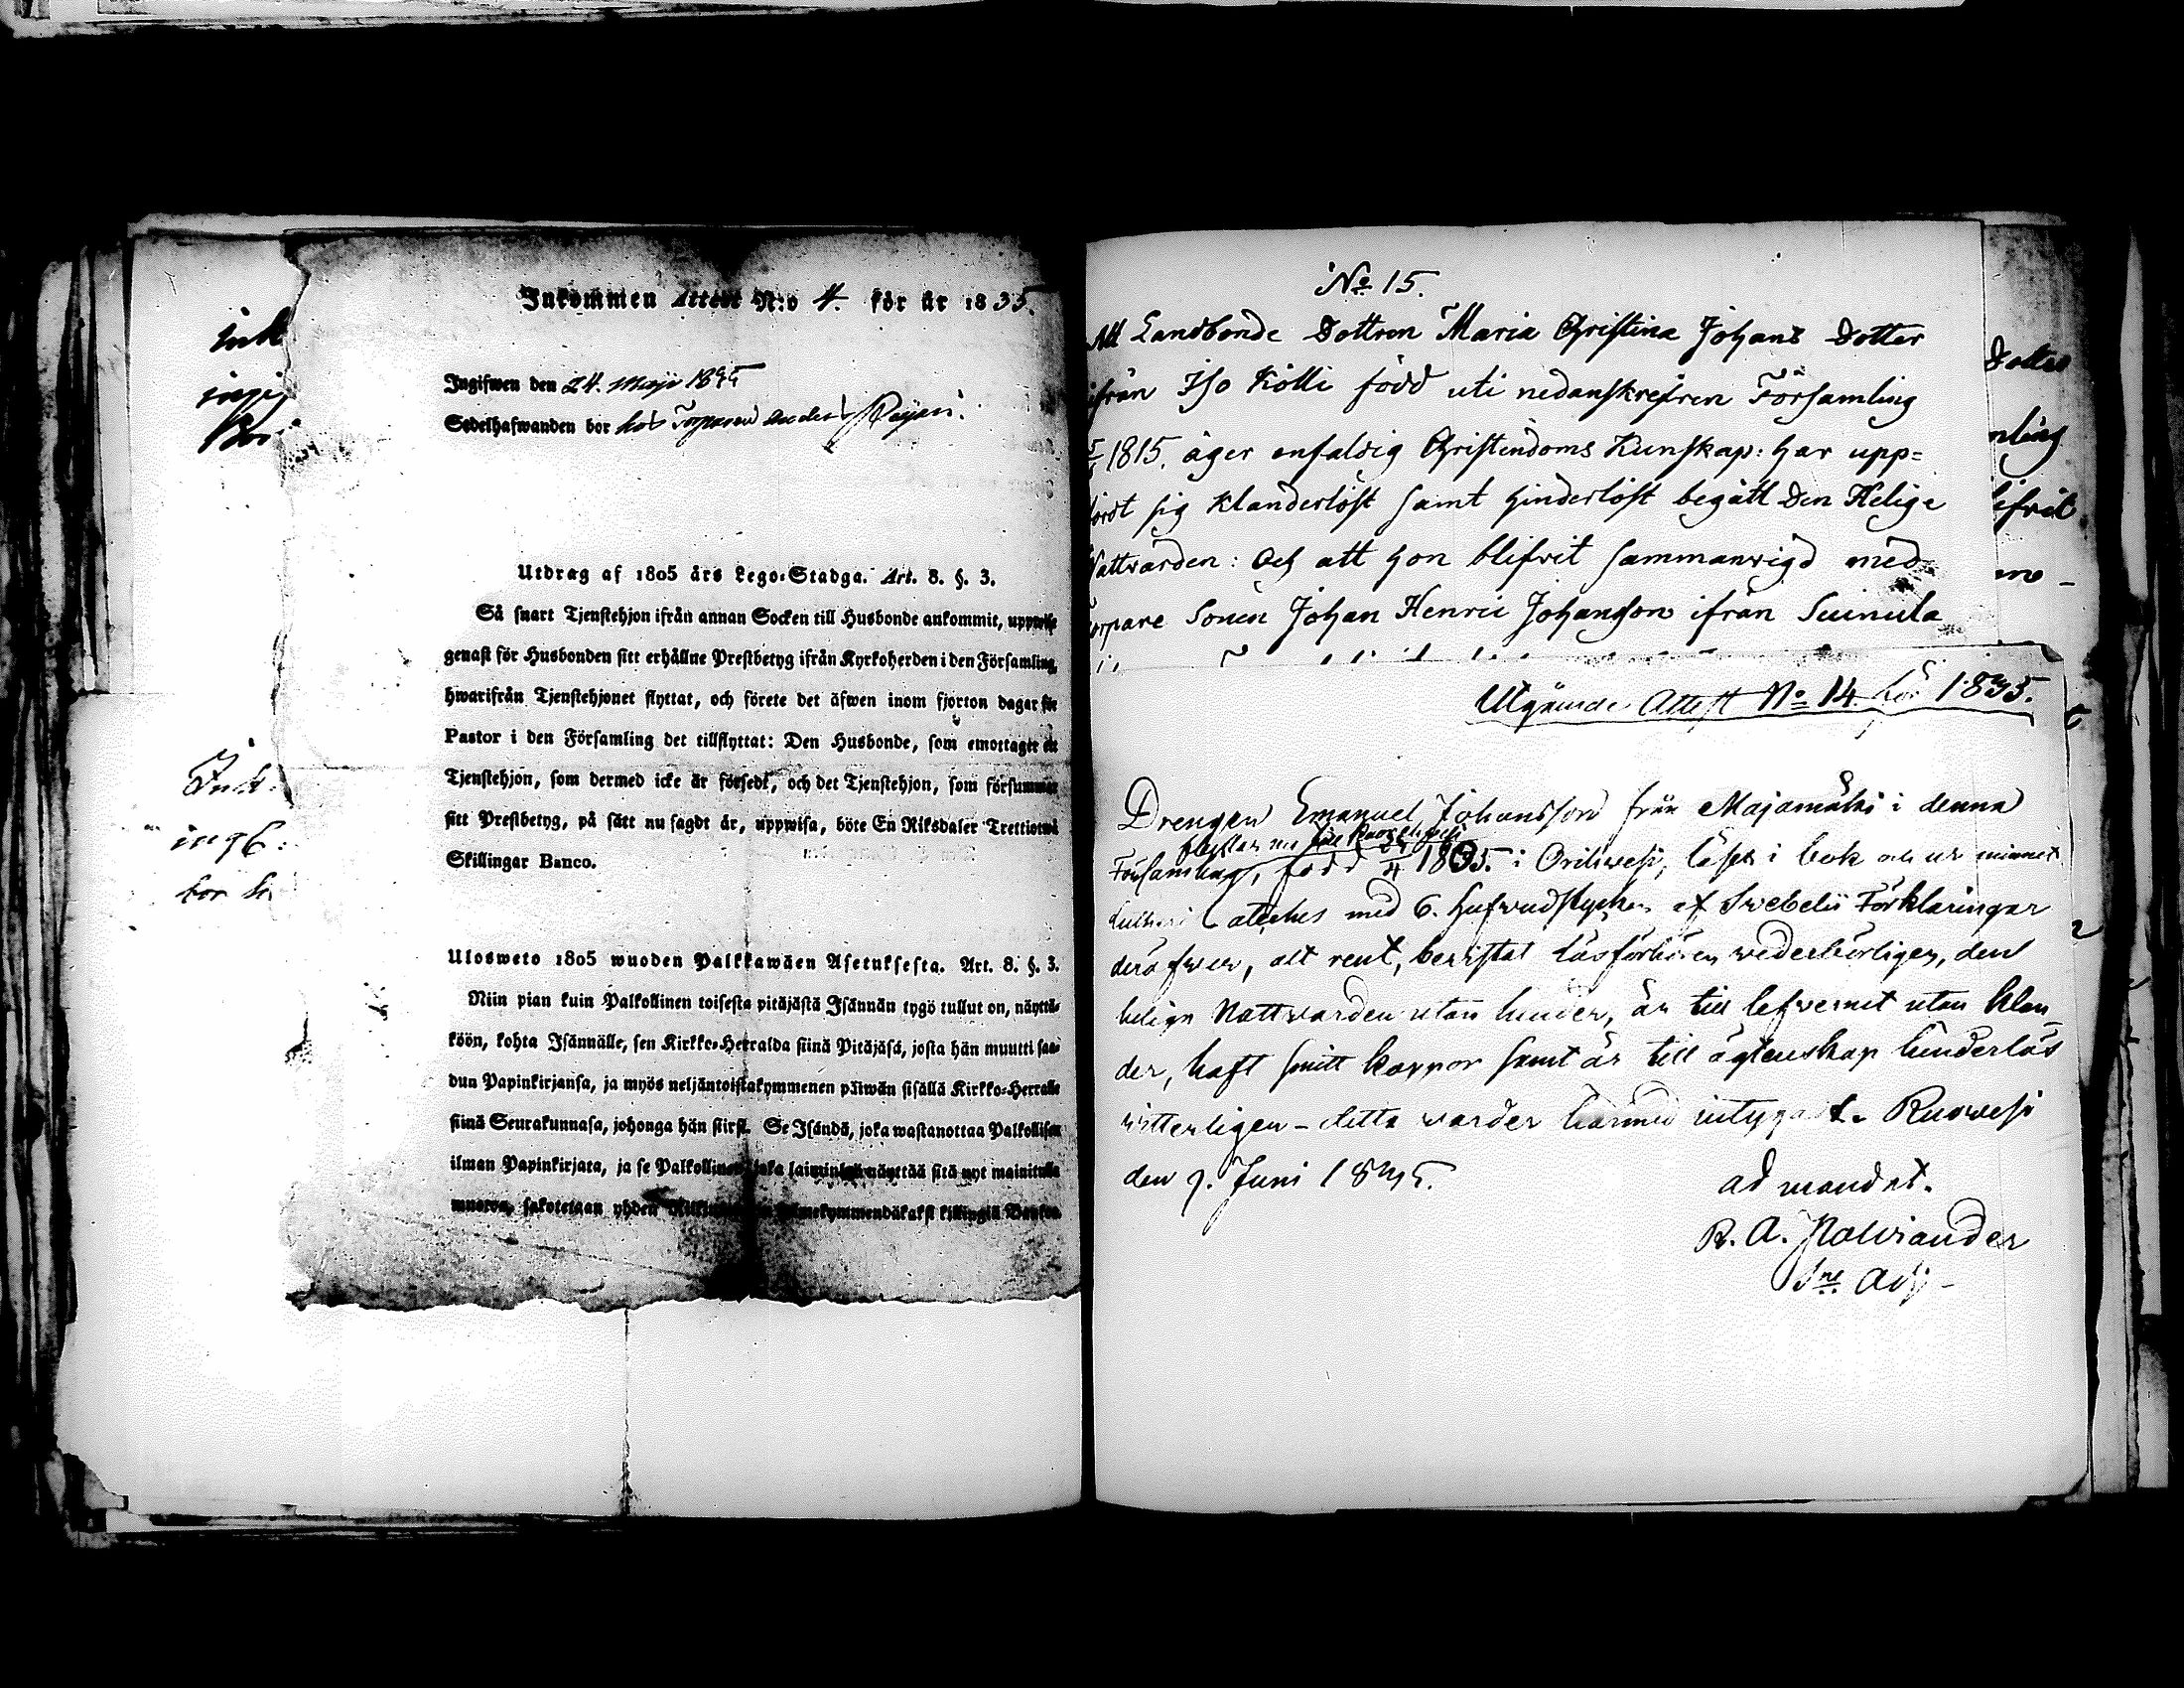 Inkommen Attest N:o 4. för år 1835.
Ingifwen den 24. Maji 1835
Sedelhafwanden bor hos Torparen Anders
Utdrag af 1805 års Lego-Stadga. Art. 8. §. 3.
Så snart Tjenstehjon ifrån annan Socken till Husbonde ankommit, uppwise
genast för Husbonden sitt erhållne Prestbetyg ifrån Kyrkoherden i den Församling,
hwarifrån Tjenstehjonet flyttat, och förete det äfwen inom fjorton dagar för
Pastor i den Församling det tillflyttat: Den Husbonde, som emottager ett
Tjenstehjon, som dermed icke är försedt, och det Tjenstehjon, som försummar
sitt Prestbetyg, på sätt nu sagdt är, uppwisa, böte En Riksdaler Trettiotwå
Skillingar Banco.
Ulosweto 1805 wuoden Palkkawäen Asetuksesta. Art. 8. §. 3.
Niin pian kuin Palkollinen toisesta pitäjästä Isännän tygö tullut on, näyttä-
köön, kohta Isännälle, sen Kirkko-Herralda siinä Pitäjäsä, josta hän muutti saa-
dun Papinkirjansa, ja myös neljäntoistakymmenen päiwän sisällä Kirkko-Herralle
siinä Seurakunnasa, johonga hän siirsi. Se Isändä, joka wastanottaa Palkollisen
ilman Papinkirjata, ja se Palkollinen joka laiminlyö näyttää sitä nyt mainitulla
muotoa, sakotetaan yhden kolmekymmendäkaksi killingiä Bankos
ink
Ink.
ing
bor h
No 15.
Att Landbonde Dottren Maria Christina Johans Dotter
ifrån Iso Kölli född uti nedanskrefven Församling
5 1815. äger enfaldig Christendoms Kunskap: har upp=
fördt sig klanderlöst samt hinderlöst begått Den Helige
Nattvarden: Och att hon blifvit sammanvigd med
Torpare Sonen Johan Henric Johansson ifrån Suinula
Dotter
mling
lifvit
Utgående Attest No 14. för 1835.
Drengen Emanuel Johansson från Majamäki i denna
flyttar nu
Församling, född 1835. i Orihvesi, läser i bok och ur minnet
Lutheri Cateches med 6. hufvudstycken af Swebelii Förklaringar
deröfwer, alt rent, bevistat läsförhören wederbörligen, den
helige Nattvarden utan hinder, är till lefvernet utan klan-
der, haft smitt koppor samt är till ägtenskap hinderlös
witterligen – detta warder härmed intygadt. Ruowesi
den 9. Juni 1835.
ad mandat.
R. A.
Adj –